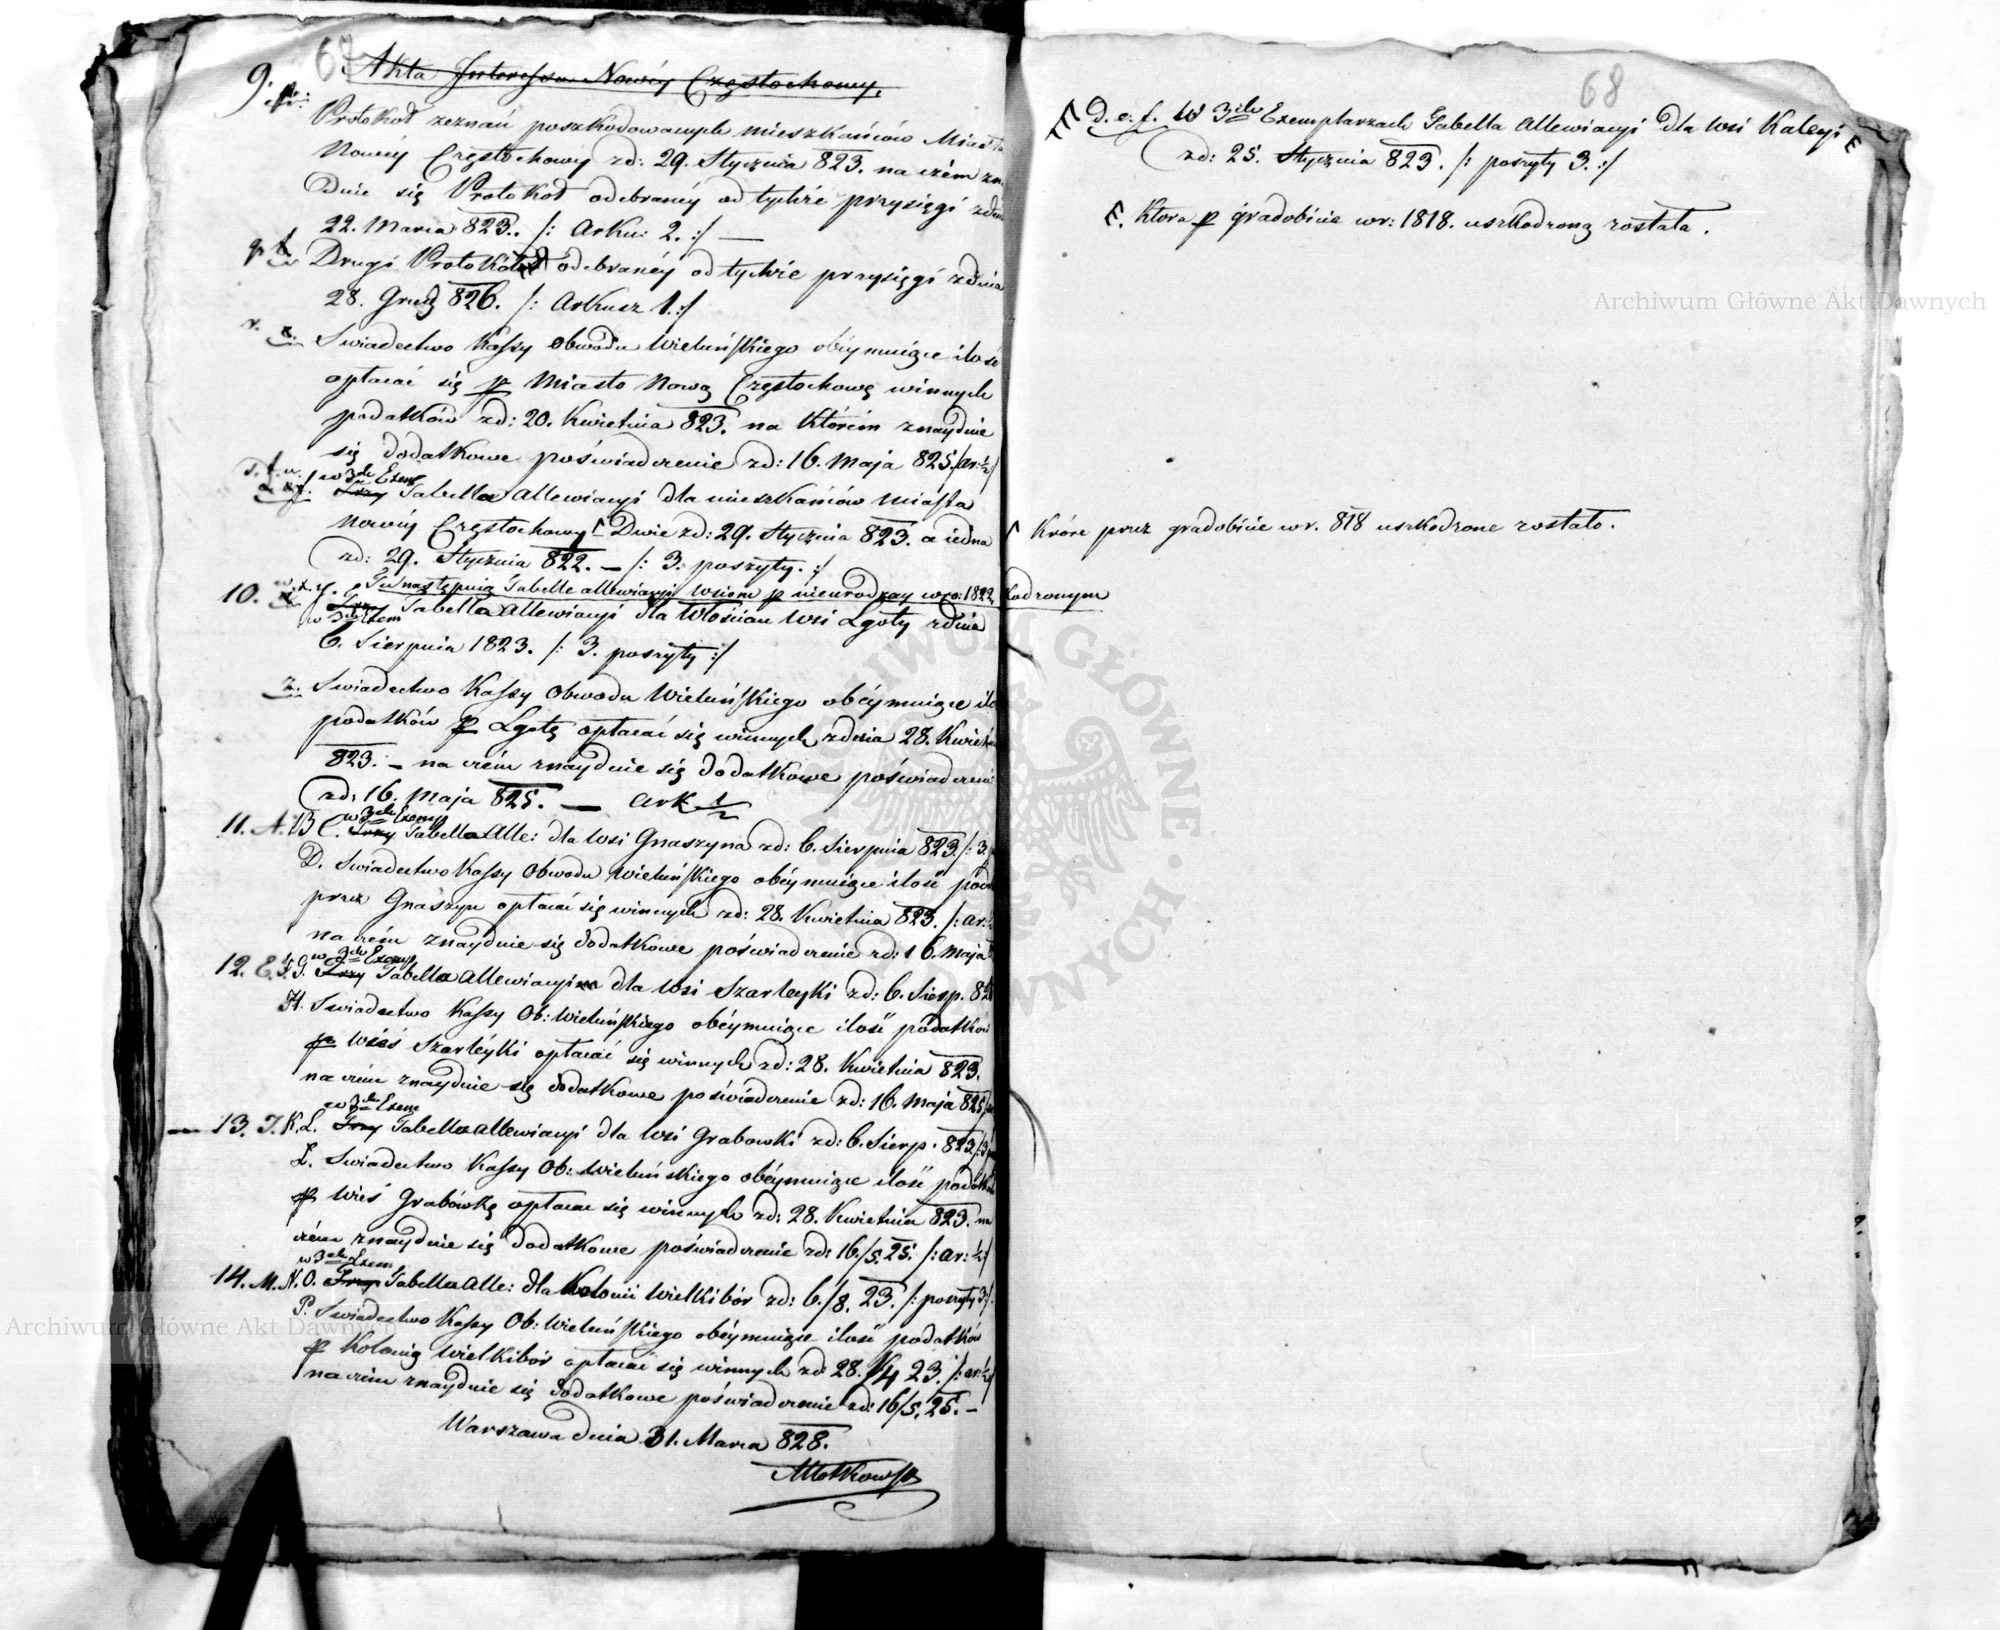 67
9. Akta Interessu Nowéy Częstochowy.
Protokoł zeznań poszkodowanych mieszkańców Miasta
Nowéy Częstochowy zd: 29. Stycznia 823. na czém znay
Duie się Protokoł odebranéy od tychże przysięgi zdnia
22. Marca 823. /: Arku: 2. :/ —
Drugi Protokół odebranéy od tychże przysięgi zdnia
28. Grud 826. /: Arkusz 1. :/
Swiadectwo Kassy obwodu Wieluńskiego obéymuiące ilość
opłacać się p Miasto Nową Częstochowę winnych
podatków zd: 20. Kwietnia 823. na którém znayduie
się dodatkowe poświadczenie zd: 16. Maja 825. /ar: ½/
w 3ch Exem
Trzy Tabella Allewiacyi dla mieszkańców miasta
Nowéy Częstochowy Γ Dwie zd: 29. Stycznia 823. a iedna
zd: 29. Stycznia 822. — /: 3. poszyty. :/
Tu następuią Tabelle allewiacyi wsiom p nieurodzay w ro: 1822
10. Trzy Tabella Allewiacyi dla Włościan wsi Lgoty zdnia
w 3ch Exem
6. Sierpnia 1823. /: 3. poszyty :/
z. Swiadectwo Kassy Obwodu Wieluńskiego obéymuiące ilo
podatków p Lgotę opłacać się winnych zdnia 28. Kwietn
823. — na czém znayduie się dodatkowe poświadczeni
zd: 16. Maja 825. — ark ½
w 3ch Exemp
11. A. B C. Trzy Tabella Alle: dla wsi Gnaszyna zd: 6. Sierpnia 823. /: 3.
D. Swiadectwo Kassy Obwodu Wieluńskiego obéymuiące ilość poda
przez Gnaszyn opłacać się winnych zd: 28. Kwietnia 823. /: ar:
na czém znayduie się dodatkowe poświadczenie zd: 16. Maja
w 3ch Exemp
12. E. F. G. Trzy Tabella Allewiacyi dla wsi Szarleyki zd: 6. Sierp. 82
H. Swiadectwo Kassy Ob: Wieluńskiego obéymuiące ilość podatków
p wieś Szarléyki opłacać się winnych zd: 28. Kwietnia 823.
na czém znayduie się dodatkowe poświadczenie zd: 16. Maja 825
w 3ch Exem
13. J. K. L. Trzy Tabella Allewiacyi dla wsi Grabowki zd: 6. Sierp. 823 /: 3
Ł. Swiadectwo Kassy Ob: Wieluńskiego obéymuiące ilość podatk
p wieś Grabówkę opłacac się winnych zd: 28. Kwietnia 823. na
czém znayduie się dodatkowe poświadczenie zd: 16./5. 25. /: ar: ½ :/
w 3ch Exem
14. M. N. O. Trzy Tabella Alle: dla Kolonii Wielkibór zd: 6./8. 23. /: poszyty 3 :/.
P. Swiadectwo Kassy Ob: Wieluńskiego obéymuiące ilość podatków
p Kolonią Wielkibór opłacać się winnych zd 28. /4 23. /: ar: ½/
na czém znayduie się dodatkowe poświadczenie zd: 16/5. 25. —
Warszawa dnia 31. Marca 828.
68
D. e. f. W 3ch Exemplarzach Tabella Allewiacyi dla wsi Kaleyi
zd: 25. Stycznia 823. /: poszyty 3. :/
Ktora p gradobicie w r: 1818. uszkodzoną została.
Γ Które przez gradobicie w r. 818 uszkodzone zostało.
kodzonym
Archiwum Główne Akt Dawnych
Archiwum Główne Akt Dawnych